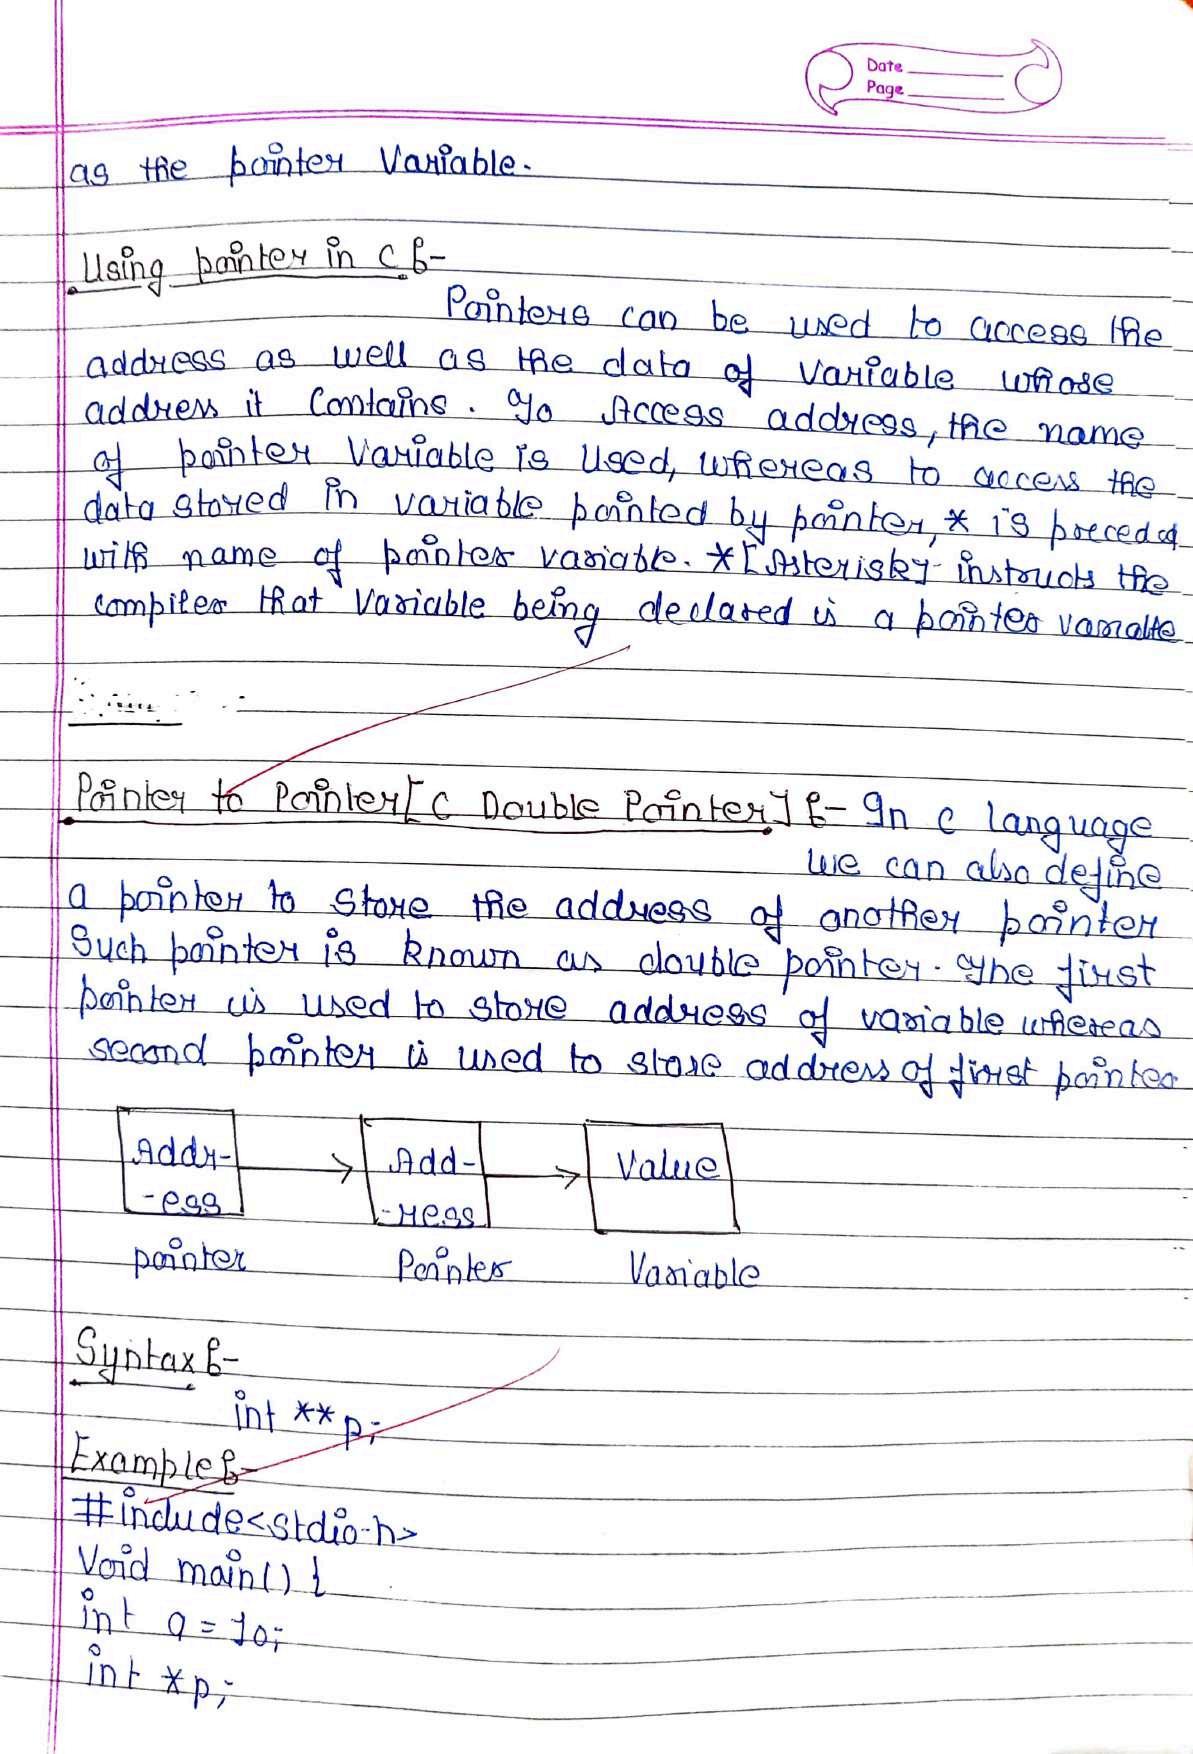 Date
Page
as the pointer Variable.
Using pointer in C :-
Pointers can be used to access the
address as well as the data of variable whose
address it Contains. To Access address, the name
of pointer Variable is Used, whereas to access the
data stored in variable pointed by pointer, * is preceded
with name of pointer variable. *[Asterisk] instructs the
compiler that Variable being declared is a pointer variable
Pointer to Pointer [C Double Pointer] :- In c language
we can also define
a pointer to store the address of another pointer
Such pointer is known as double pointer. The first
pointer is used to store address of variable whereas
second pointer is used to store address of first pointer
Addr- Add- Value
-ess -ress
pointer Pointer Variable
Syntax :-
int **p;
Example :-
#include<stdio.h>
Void main() {
int a = 10;
int *p;